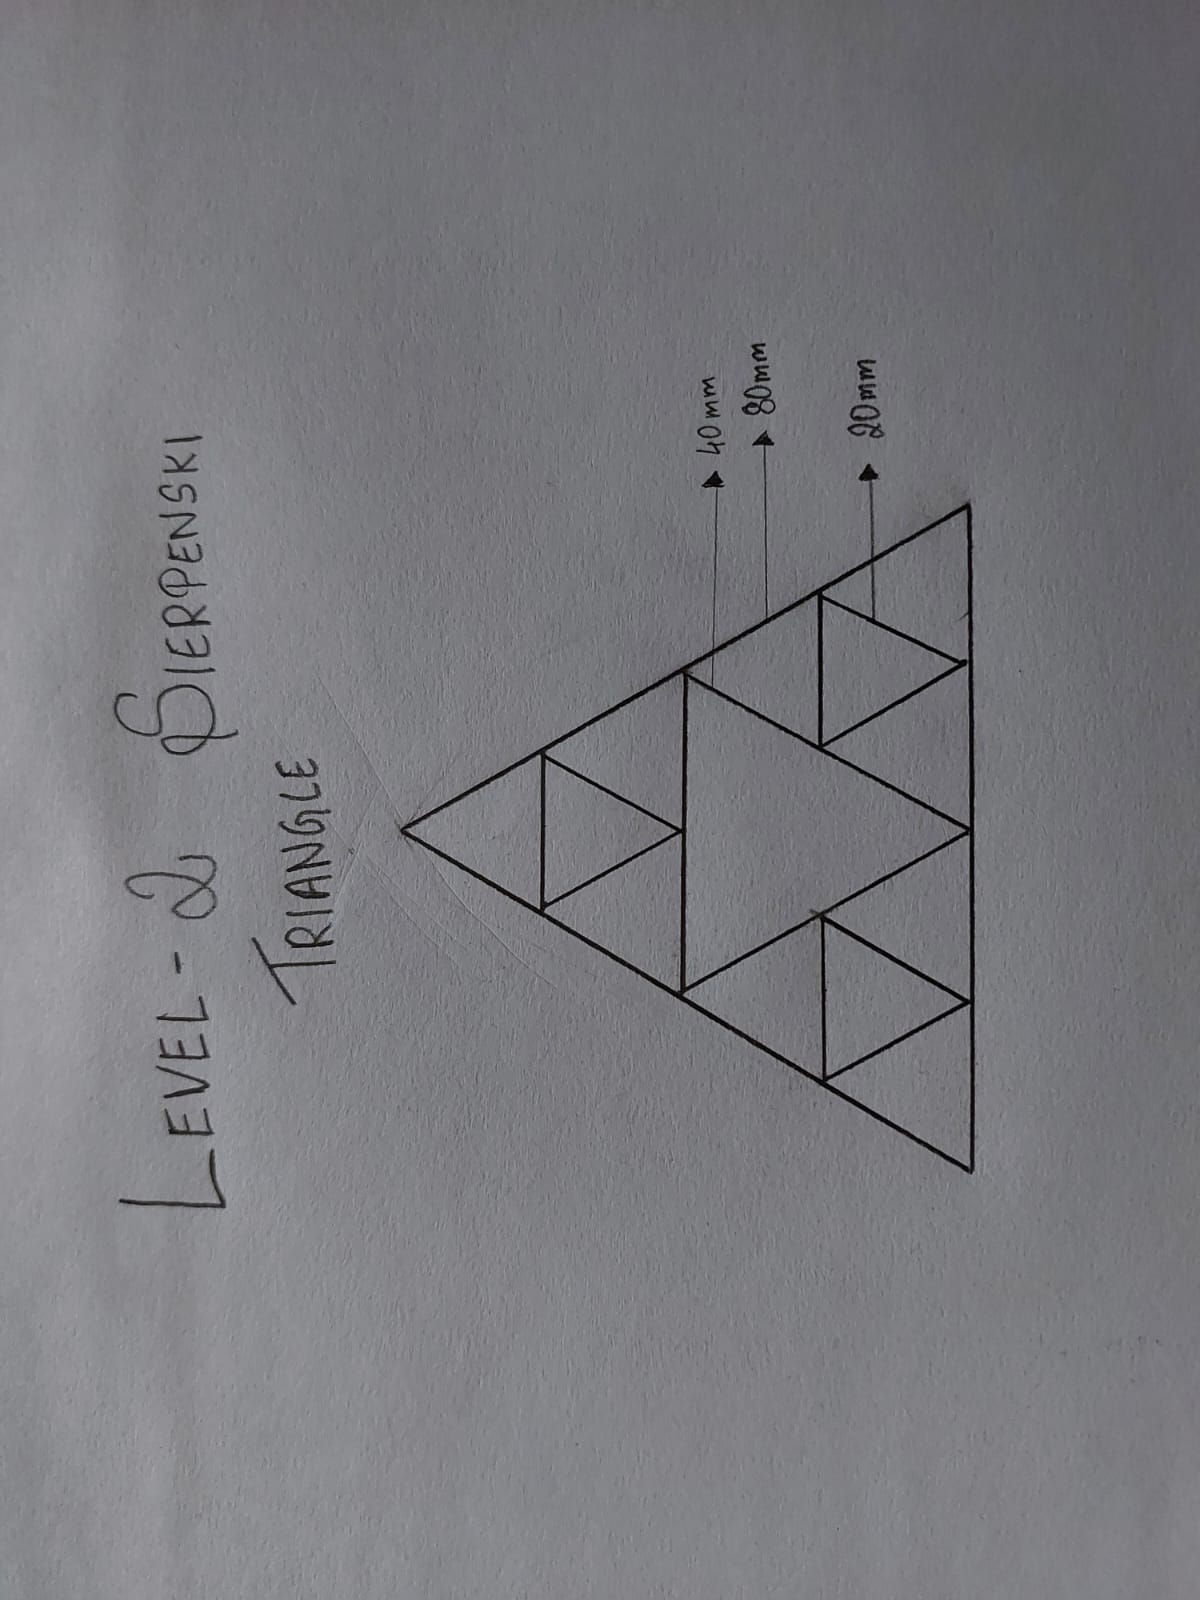 LEVEL-2 SIERPENSKI
TRIANGLE
40mm
80mm
20mm